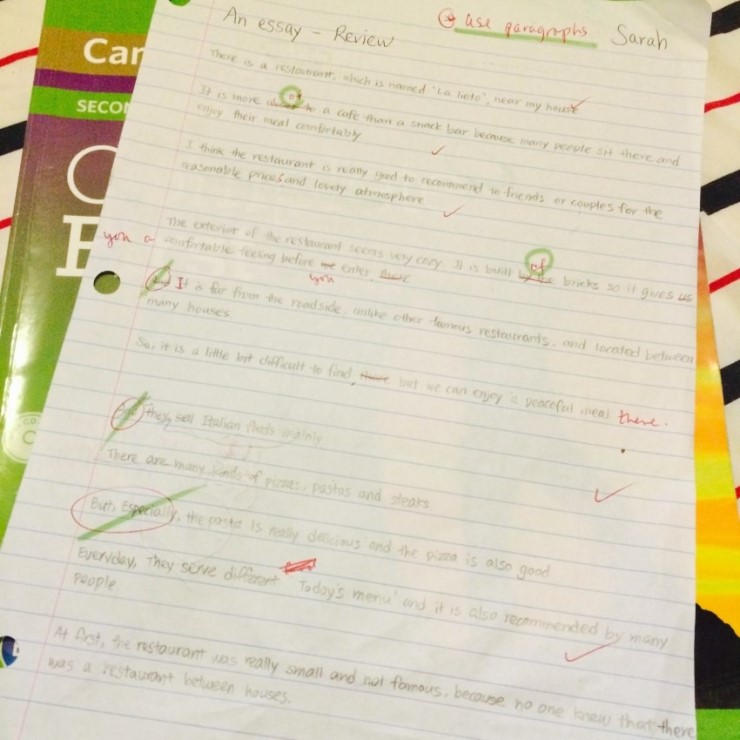 Can
SECON
An essay - Review
use paragraphs
Sarah
There is a restaurant, which is named "La lieto", near my house
It is more of a café than a snack bar because many people sit there and
enjoy their meal comfortably
I think the restaurant is really good to recommend to friends or couples for the
reasonable prices and lovely atmosphere
The exterior of the restaurant seems very cozy. It is built of bricks so it gives us
you a comfortable feeling before we enter there
you
It is far from the roadside, unlike other famous restaurants, and located between
many houses
So, it is a little bit difficult to find, there but we can enjoy a peaceful meal there.
And they sell Italian foods mainly
There are many kinds of pizzas, pastas and steaks
But, Especially, the pasta is really delicious and the pizza is also good
Everyday, They serve different 'Today's menu' and it is also recommended by many
people.
At first, the restaurant was really small and not famous, because no one knew that there
was a restaurant between houses.